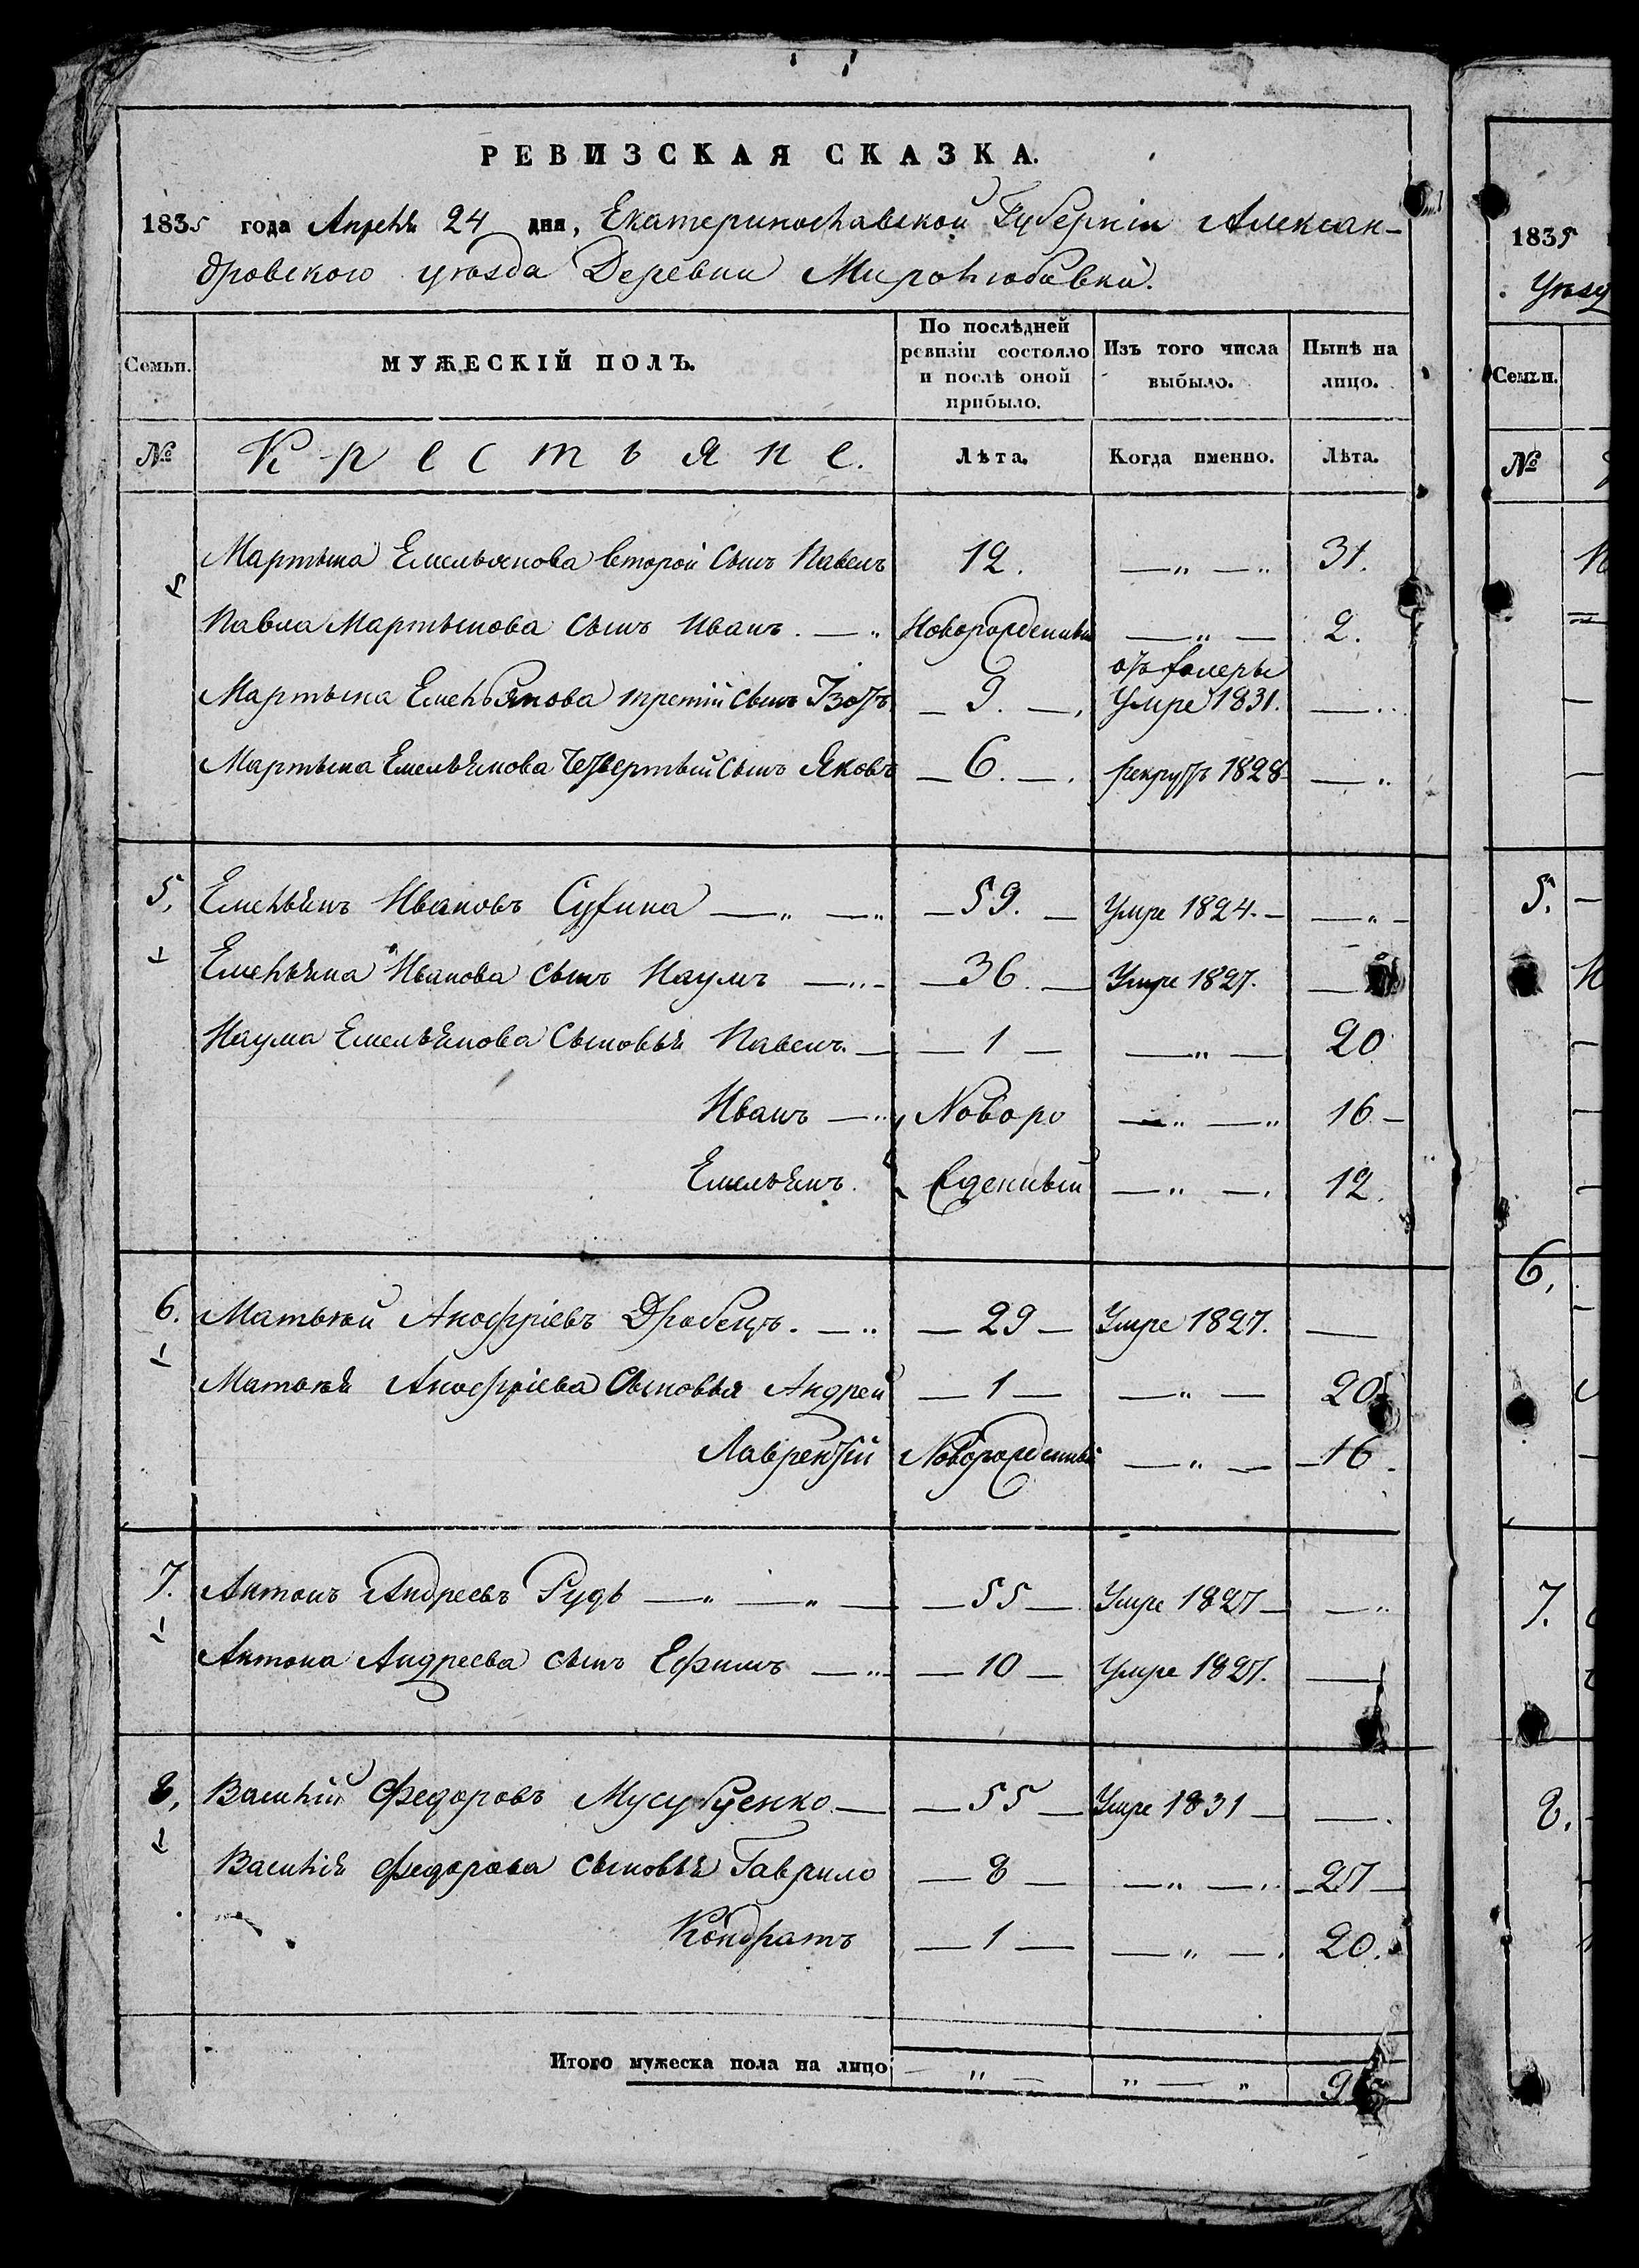 РЕВИЗСКАЯ СКАЗКА.
1835 года Апрѣля 24 дня, Екатеринославской Губерніи Алексан-
дровского уѣзда Деревни Миролюбовки.
Семьи. МУЖЕСКІЙ ПОЛЪ. По послѣдней ревизіи состояло и послѣ оной прибыло. Изъ того числа выбыло. Нынѣ на лицо.
№ Крестьяне. Лѣта. Когда именно. Лѣта.
Мартына Емельянова второй сынъ Павелъ 12. — „ — „ 31.
Павла Мартынова сынъ Иванъ. — „ Новорожденный — „ — 2.
отъ холеры
Мартына Емельянова третій сынъ Изотъ — 9. — Умре 1831. —
Мартына Емельянова Четвертый сынъ Яковъ — 6. — рекрутъ 1828 — „
5. Емельянъ Ивановъ Сухина — „ — „ — 59. — Умре 1824. — — „ —
Емельяна Иванова сынъ Наумъ — „ — — 36. — Умре 1827. —
Наума Емельянова Сыновья Павелъ. — — 1 — — „ — 20
Иванъ — „ Новоро — „ — „ 16 —
Емельянъ. жденный — „ — . 12.
6. Матвѣй Анофріевъ Дробецъ. — „ — 29 — Умре 1827. —
Матвѣя Анофріева Сыновья Андрей — 1 — — „ — 20
Лаврентій Новорожденный — „ — — 16 —
7. Антонъ Андреевъ Рудь — „ — „ — — 55 — Умре 1827 — — „
Антона Андреева сынъ Ефимъ — „ — 10 — Умре 1827. —
8. Василій Федоровъ Мусубценко — — 55 — Умре 1831 — — .
Василія Федорова сыновья Гаврило — 8 — — „ — „ — 27 —
Кондратъ — 1 — — „ — . 20.
Итого мужеска пола на лицо — „ — „ — „
1835
Уѣзд
Семьи.
№
5.
6.
7.
8.